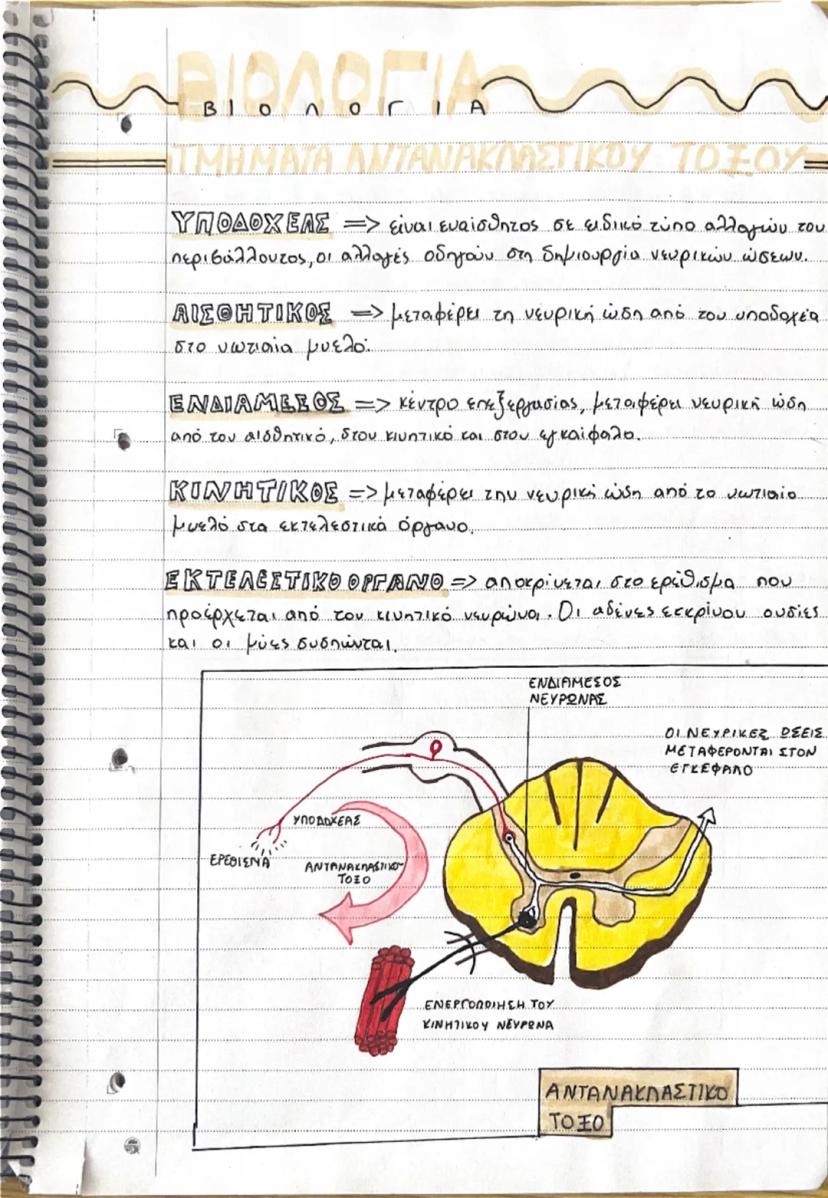 ΒΙΟΛΟΓΙΑ
ΒΙΟΛΟΓΙΑ
ΤΜΗΜΑΤΑ ΑΝΤΑΝΑΚΛΑΣΤΙΚΟΥ ΤΟΞΟΥ
ΥΠΟΔΟΧΕΑΣ => είναι ευαίσθητος σε ειδικό τύπο αλλαγών του
περιβάλλοντος, οι αλλαγές οδηγούν στη δημιουργία νευρικών ώσεων.
ΑΙΣΘΗΤΙΚΟΣ => μεταφέρει τη νευρική ώδη από τον υποδοχέα
στο νωτιαία μυελό.
ΕΝΔΙΑΜΕΣΟΣ => κέντρο επεξεργασίας, μεταφέρει νευρική ώδη
από τον αισθητικό, στον κινητικό και στον εγκαίφαλο.
ΚΙΝΗΤΙΚΟΣ => μεταφέρει την νευρική ώδη από το νωτιαίο
μυελό στα εκτελεστικά όργανα.
ΕΚΤΕΛΕΣΤΙΚΟ ΟΡΓΑΝΟ => αποκρίνεται στο ερέθισμα που
προέρχεται από τον κινητικό νευρώνα. Οι αδένες εκκρίνου ουσίες
και οι μύες συσπώνται.
ΕΝΔΙΑΜΕΣΟΣ
ΝΕΥΡΩΝΑΣ
ΟΙ ΝΕΥΡΙΚΕΣ ΩΣΕΙΣ
ΜΕΤΑΦΕΡΟΝΤΑΙ ΣΤΟΝ
ΕΓΚΕΦΑΛΟ
ΥΠΟΔΟΧΕΑΣ
ΕΡΕΘΙΣΜΑ
ΑΝΤΑΝΑΚΛΑΣΤΙΚΟ
ΤΟΞΟ
ΕΝΕΡΓΟΠΟΙΗΣΗ ΤΟΥ
ΚΙΝΗΤΙΚΟΥ ΝΕΥΡΩΝΑ
ΑΝΤΑΝΑΚΛΑΣΤΙΚΟ
ΤΟΞΟ